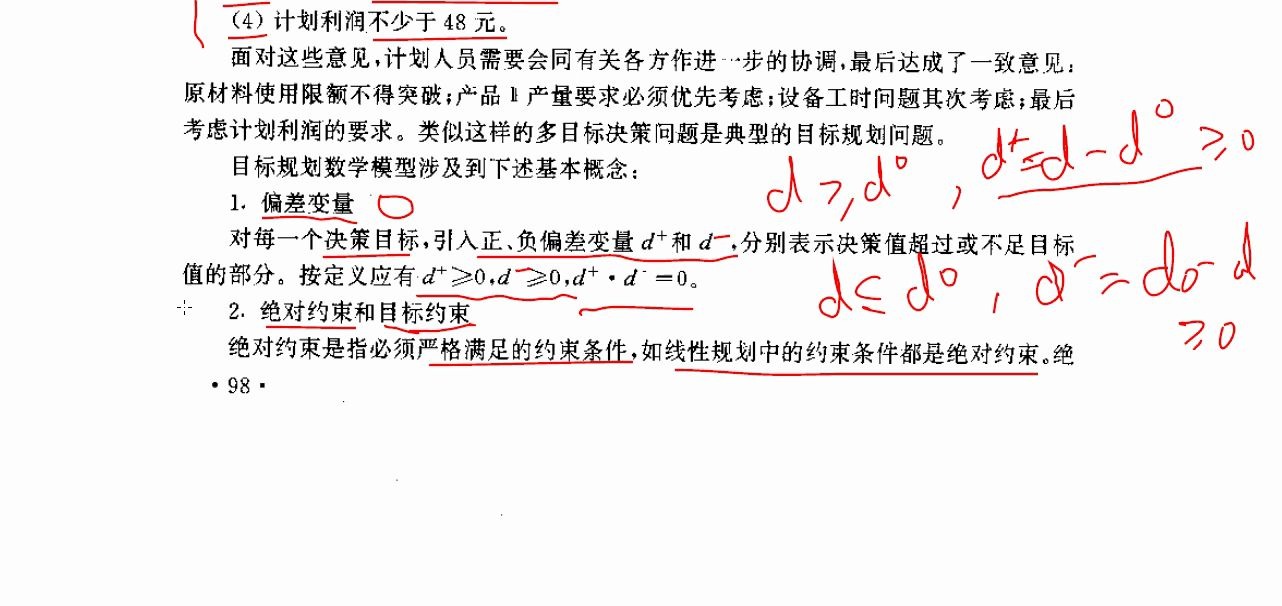 (4) 计划利润不少于 48 元。
面对这些意见,计划人员需要会同有关各方作进一步的协调,最后达成了一致意见:
原材料使用限额不得突破;产品 Ⅱ 产量要求必须优先考虑;设备工时问题其次考虑;最后
考虑计划利润的要求。类似这样的多目标决策问题是典型的目标规划问题。
目标规划数学模型涉及到下述基本概念:
d ≥ d⁰ , d⁺ = d - d⁰ ≥ 0
1. 偏差变量
对每一个决策目标,引入正、负偏差变量 d⁺和 d⁻,分别表示决策值超过或不足目标
值的部分。按定义应有 d⁺≥0,d⁻≥0,d⁺·d⁻=0。
d ≤ d⁰ , d⁻ = d₀ - d
≥ 0
2. 绝对约束和目标约束
绝对约束是指必须严格满足的约束条件,如线性规划中的约束条件都是绝对约束。绝
·98·